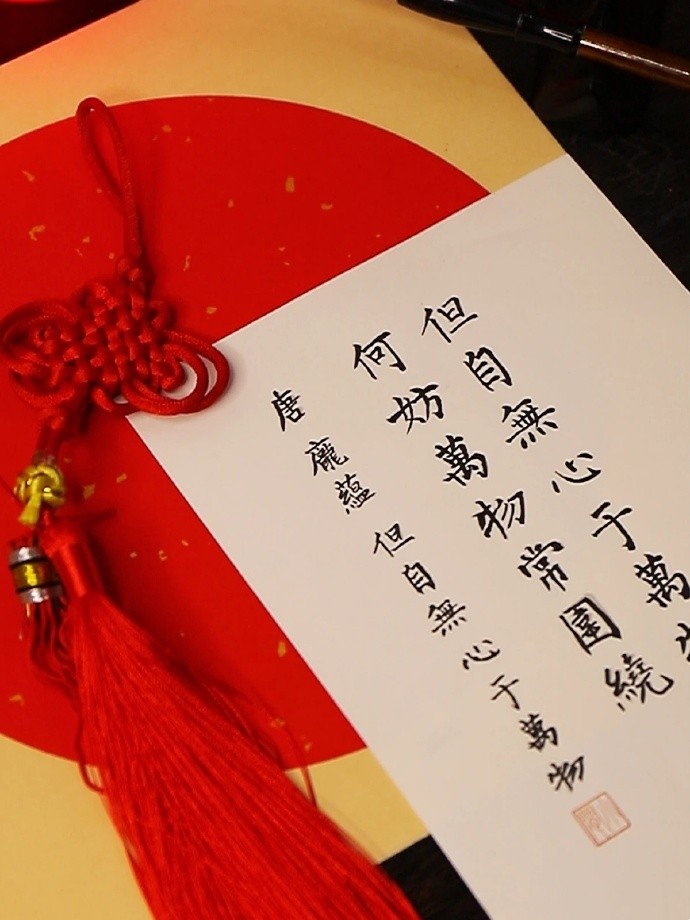 但自無心于萬
何妨萬物常圍繞
唐 龐蘊 但自無心于萬物